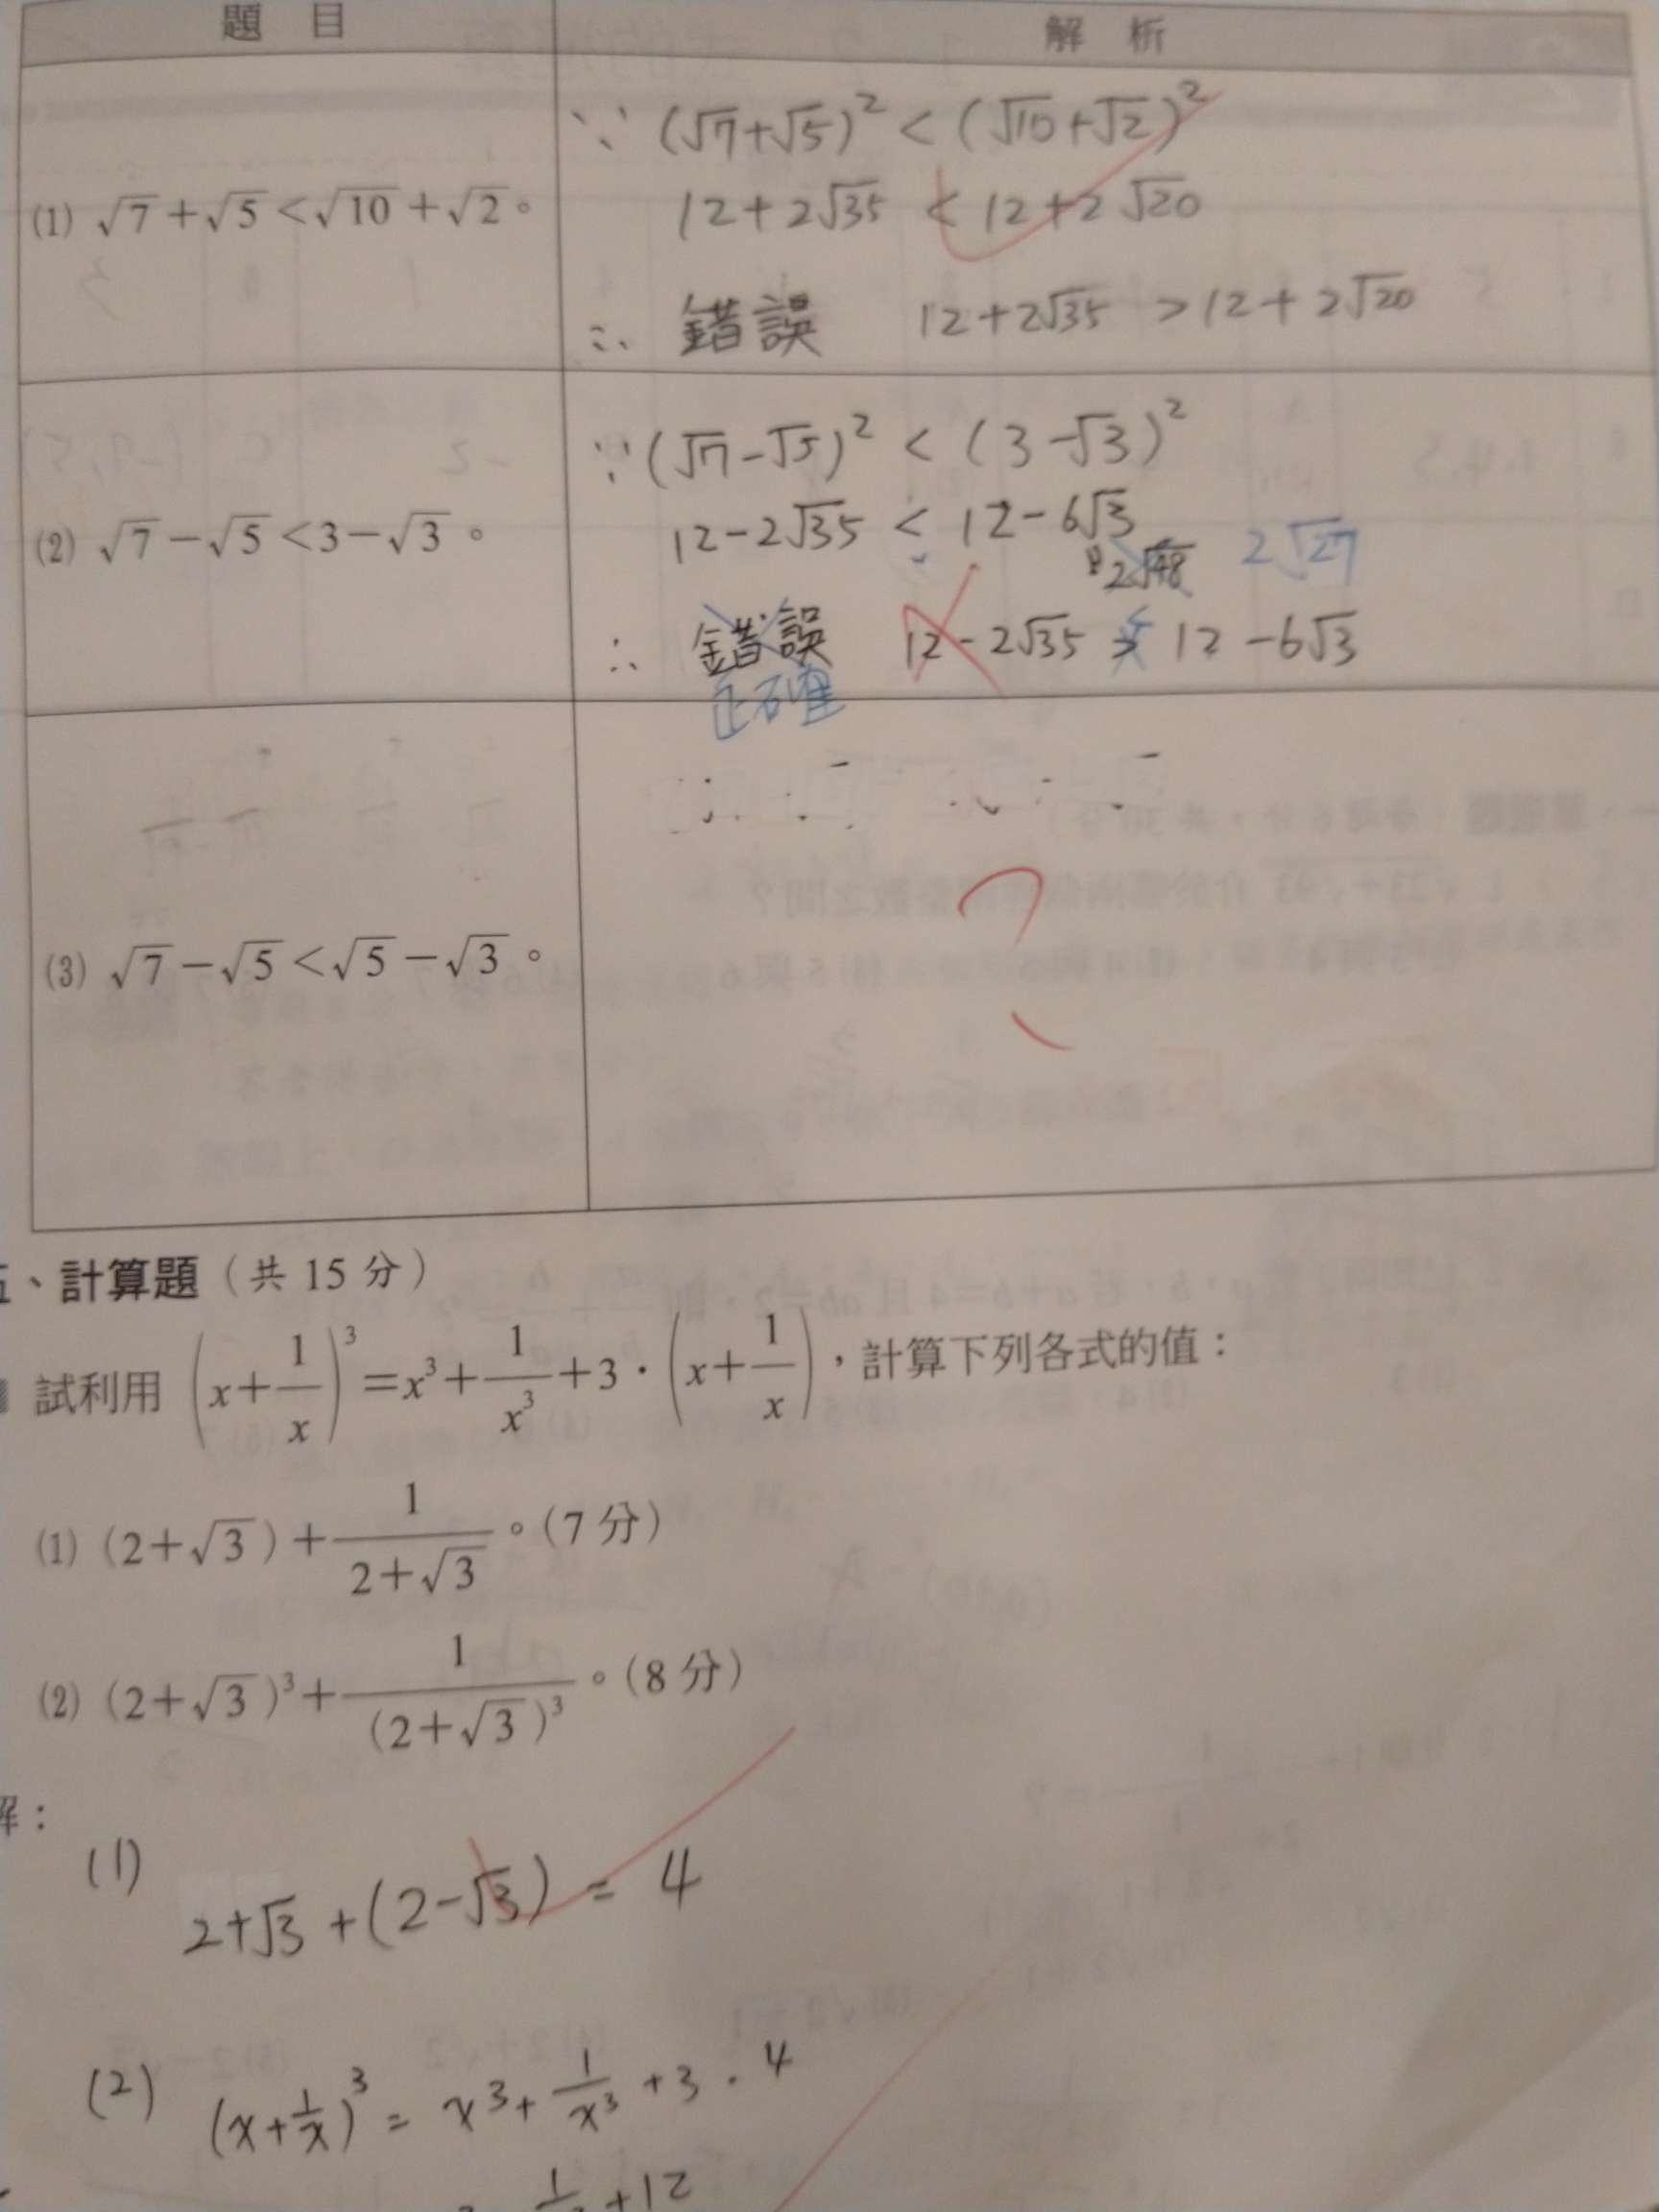 題 目 解 析
(1) √7+√5<√10+√2。
∵ (√7+√5)² < (√10+√2)²
12+2√35 < 12+2√20
∴ 錯誤 12+2√35 >12+2√20
(2) √7−√5<3−√3。
∵(√7−√5)² < (3−√3)²
12−2√35 < 12−6√3
2√48 2√27
∴ 錯誤 12−2√35 < 12−6√3
正確
(3) √7−√5<√5−√3。
?
五、計算題(共 15 分)
試利用 (x+1/x)³=x³+1/x³+3·(x+1/x),計算下列各式的值:
(1) (2+√3)+1/(2+√3)。(7 分)
(2) (2+√3)³+1/(2+√3)³。(8 分)
解:
(1)
2+√3+(2−√3) = 4
(2) (x+1/x)³ = x³+1/x³+3·4
+12